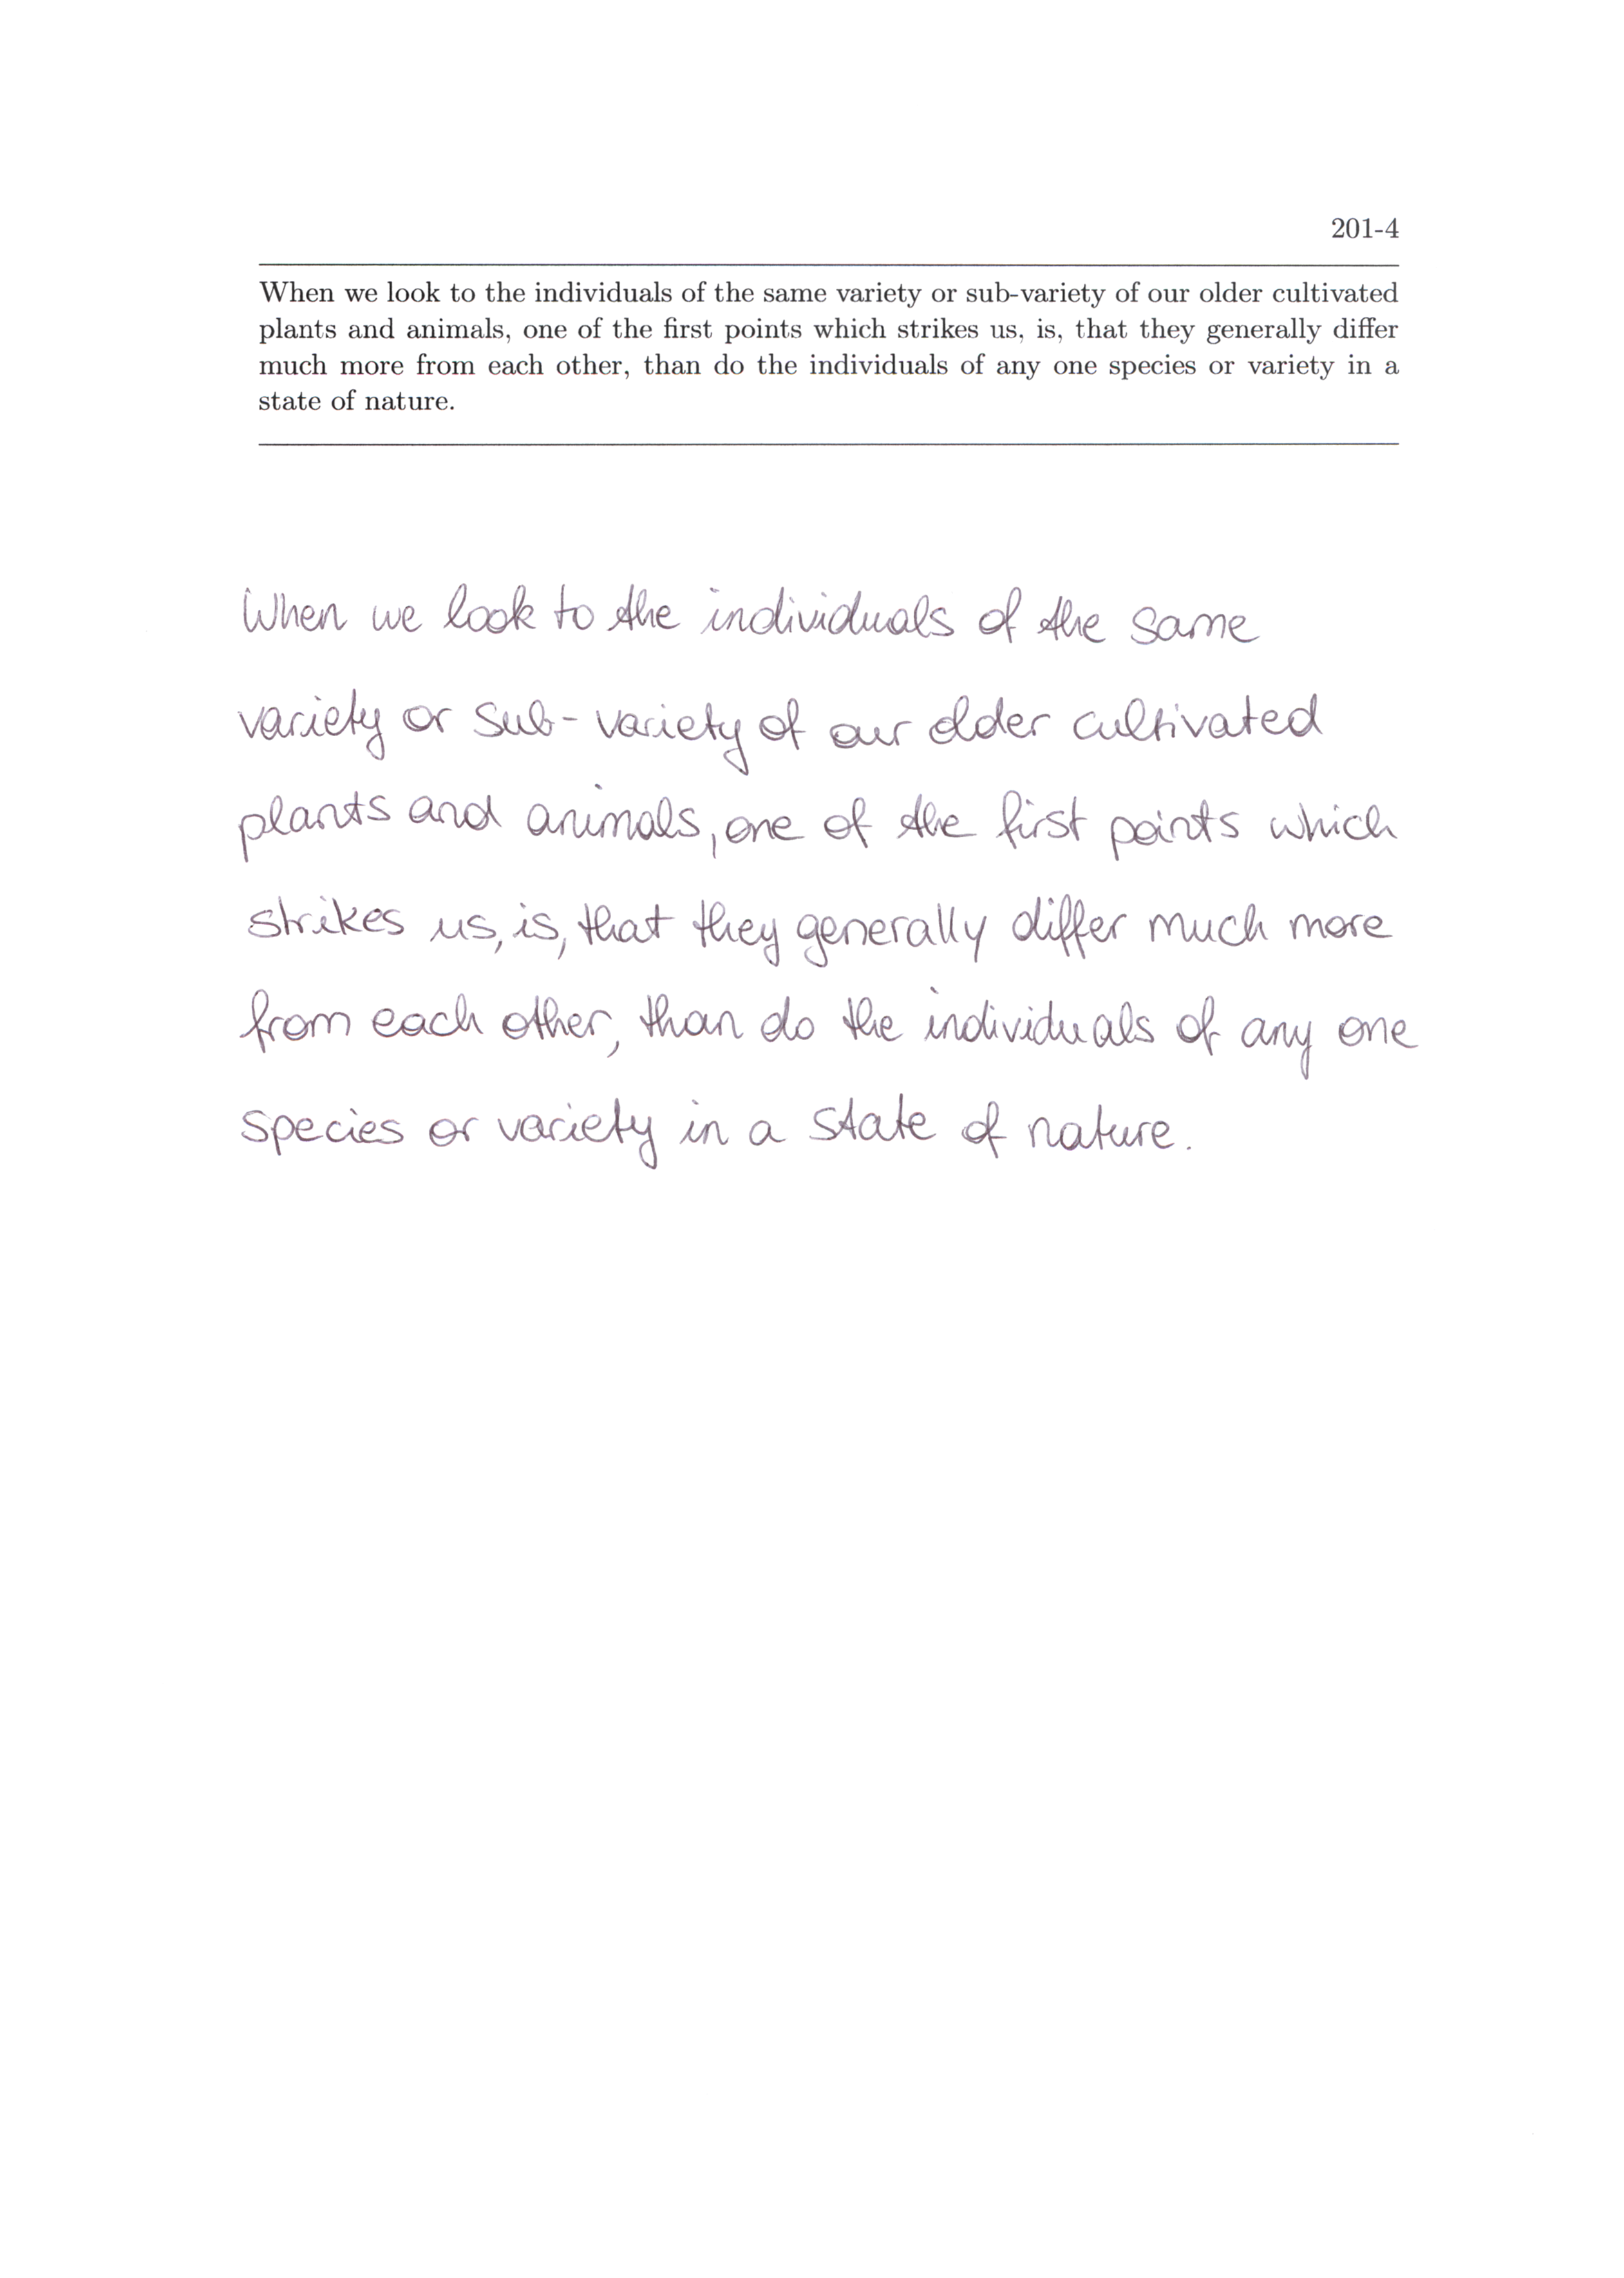 201-4
When we look to the individuals of the same variety or sub-variety of our older cultivated
plants and animals, one of the first points which strikes us, is, that they generally differ
much more from each other, than do the individuals of any one species or variety in a
state of nature.
When we look to the individuals of the same
variety or sub-variety of our older cultivated
plants and animals, one of the first points which
strikes us, is, that they generally differ much more
from each other, than do the individuals of any one
species or variety in a state of nature.